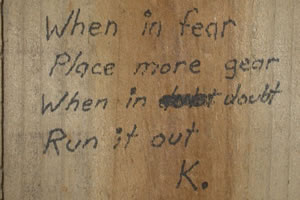 When in fear
Place more gear
When in doubt
Run it out
K.